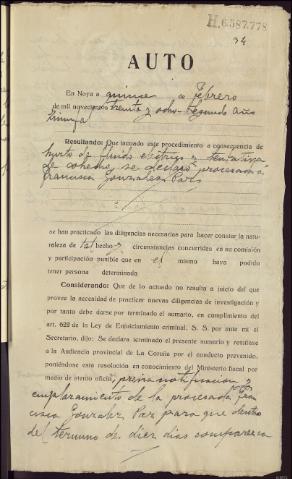 H.6.587.778
34
AUTO
En Noya a quince de Febrero
de mil novecientos treinta y ocho - Segundo año
triunfal
Resultando: Que incoado este procedimiento a consecuencia de
hurto de fluido electrico y tentativa
de cohecho, se declaró procesada a
Francisca Gonzalez Paz
se han practicado las diligencias necesarias para hacer constar la natu-
raleza de tal hecho, circunstancias concurridas en su comisión
y participación punible que en el mismo haya podido
tener persona determinada
Considerando: Que de lo actuado no resulta a juicio del que
provee la necesidad de practicar nuevas diligencias de investigación y
por tanto debe darse por terminado el sumario, en cumplimiento del
art. 622 de la Ley de Enjuiciamiento criminal, S. S. por ante mí el
Secretario, dijo: Se declara terminado el presente sumario y remítase
a la Audiencia provincial de La Coruña por el conducto prevenido,
poniéndose esta resolución en conocimiento del Ministerio fiscal por
medio de atento oficio, previa notificación y
emplazamiento de la procesada Fran
cisca Gonzalez Paz para que dentro
del termino de diez dias comparezca